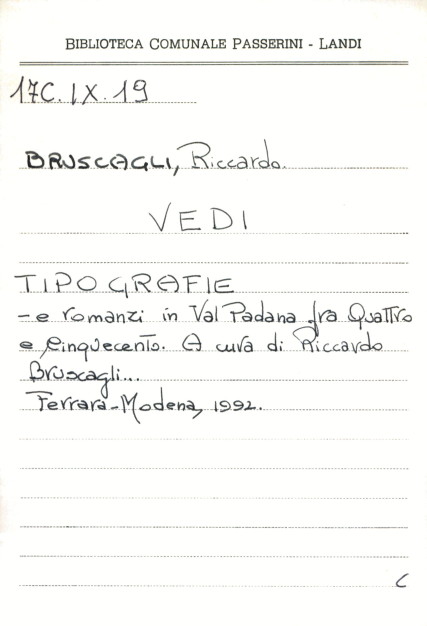 BIBLIOTECA COMUNALE PASSERINI - LANDI
17C.IX.19
BRUSCAGLI, Riccardo.
VEDI
TIPOGRAFIE
- e romanzi in Val Padana fra Quattro
e Cinquecento. A cura di Riccardo
Bruscagli...
Ferrara-Modena, 1992.
C